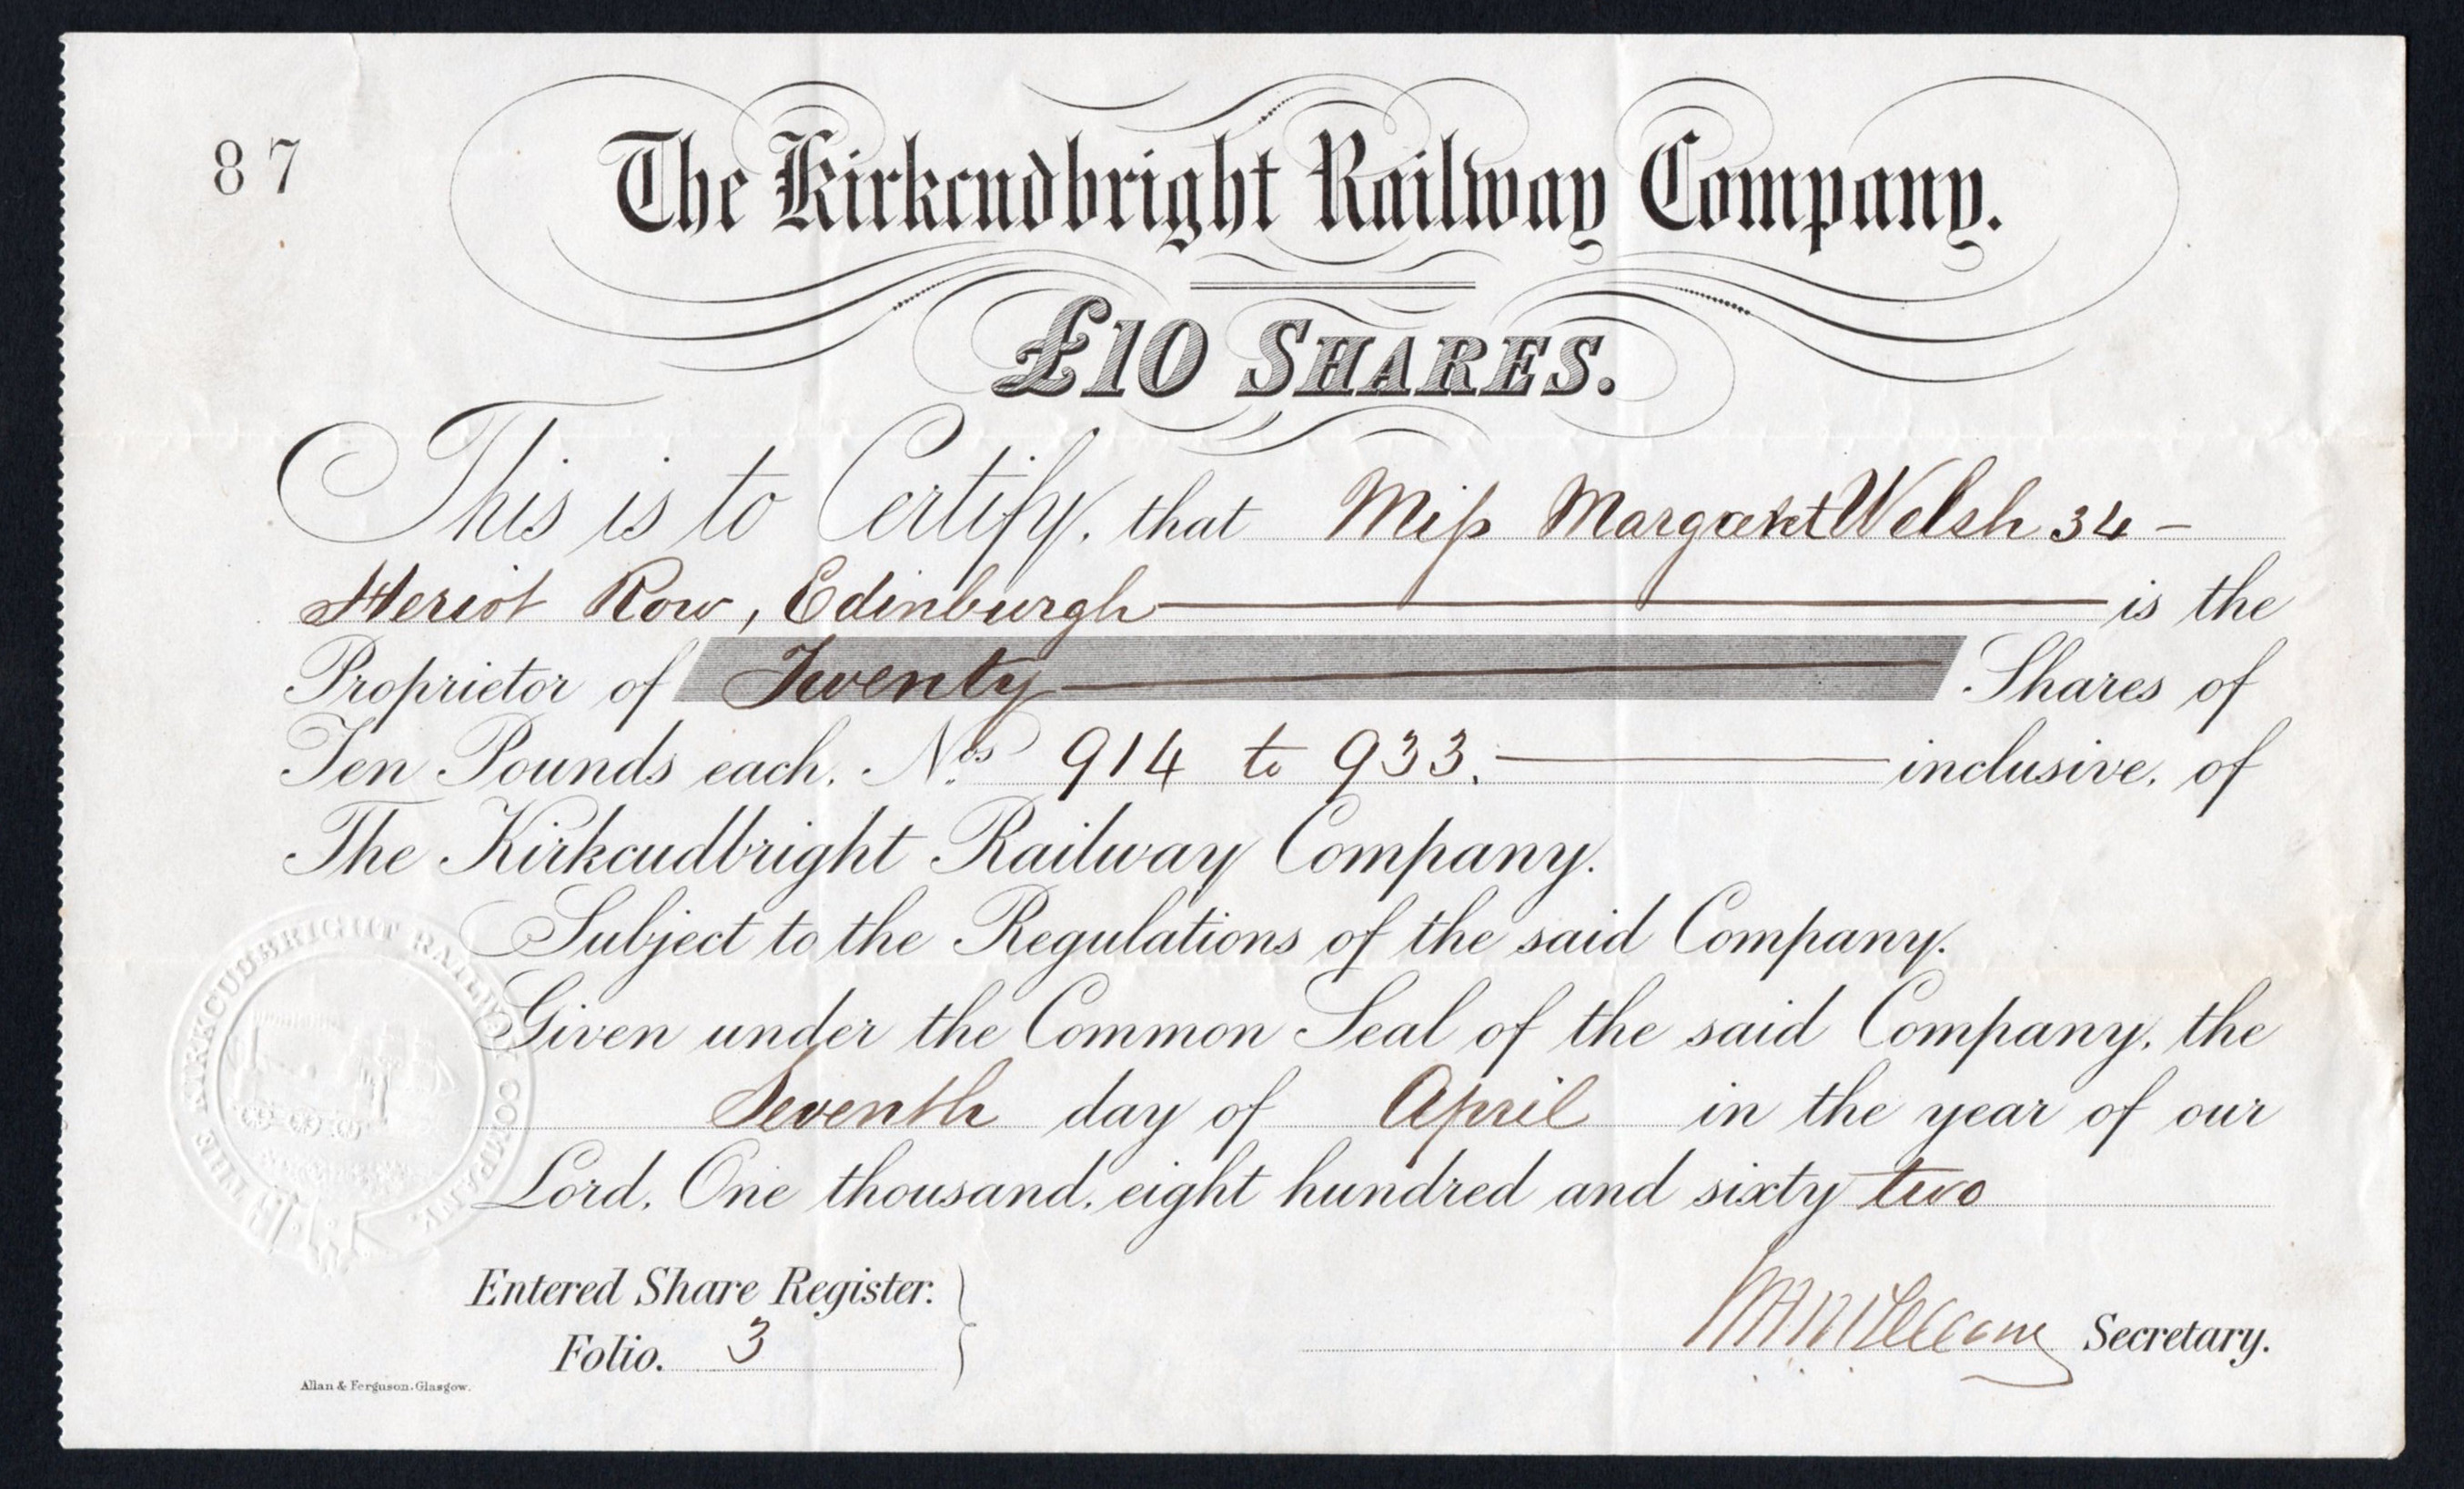 87
The Kirkcudbright Railway Company.
£10 SHARES.
This is to Certify, that Miss Margaret Welsh 34 -
Heriot Row, Edinburgh is the
Proprietor of Twenty Shares of
Ten Pounds each, Nos. 914 to 933. inclusive, of
The Kirkcudbright Railway Company.
Subject to the Regulations of the said Company.
Given under the Common Seal of the said Company, the
Seventh day of April in the year of our
Lord, One thousand, eight hundred and sixty two
THE KIRKCUDBRIGHT RAILWAY COMPANY
Entered Share Register.
Folio. 3
Secretary.
Allan & Ferguson, Glasgow.